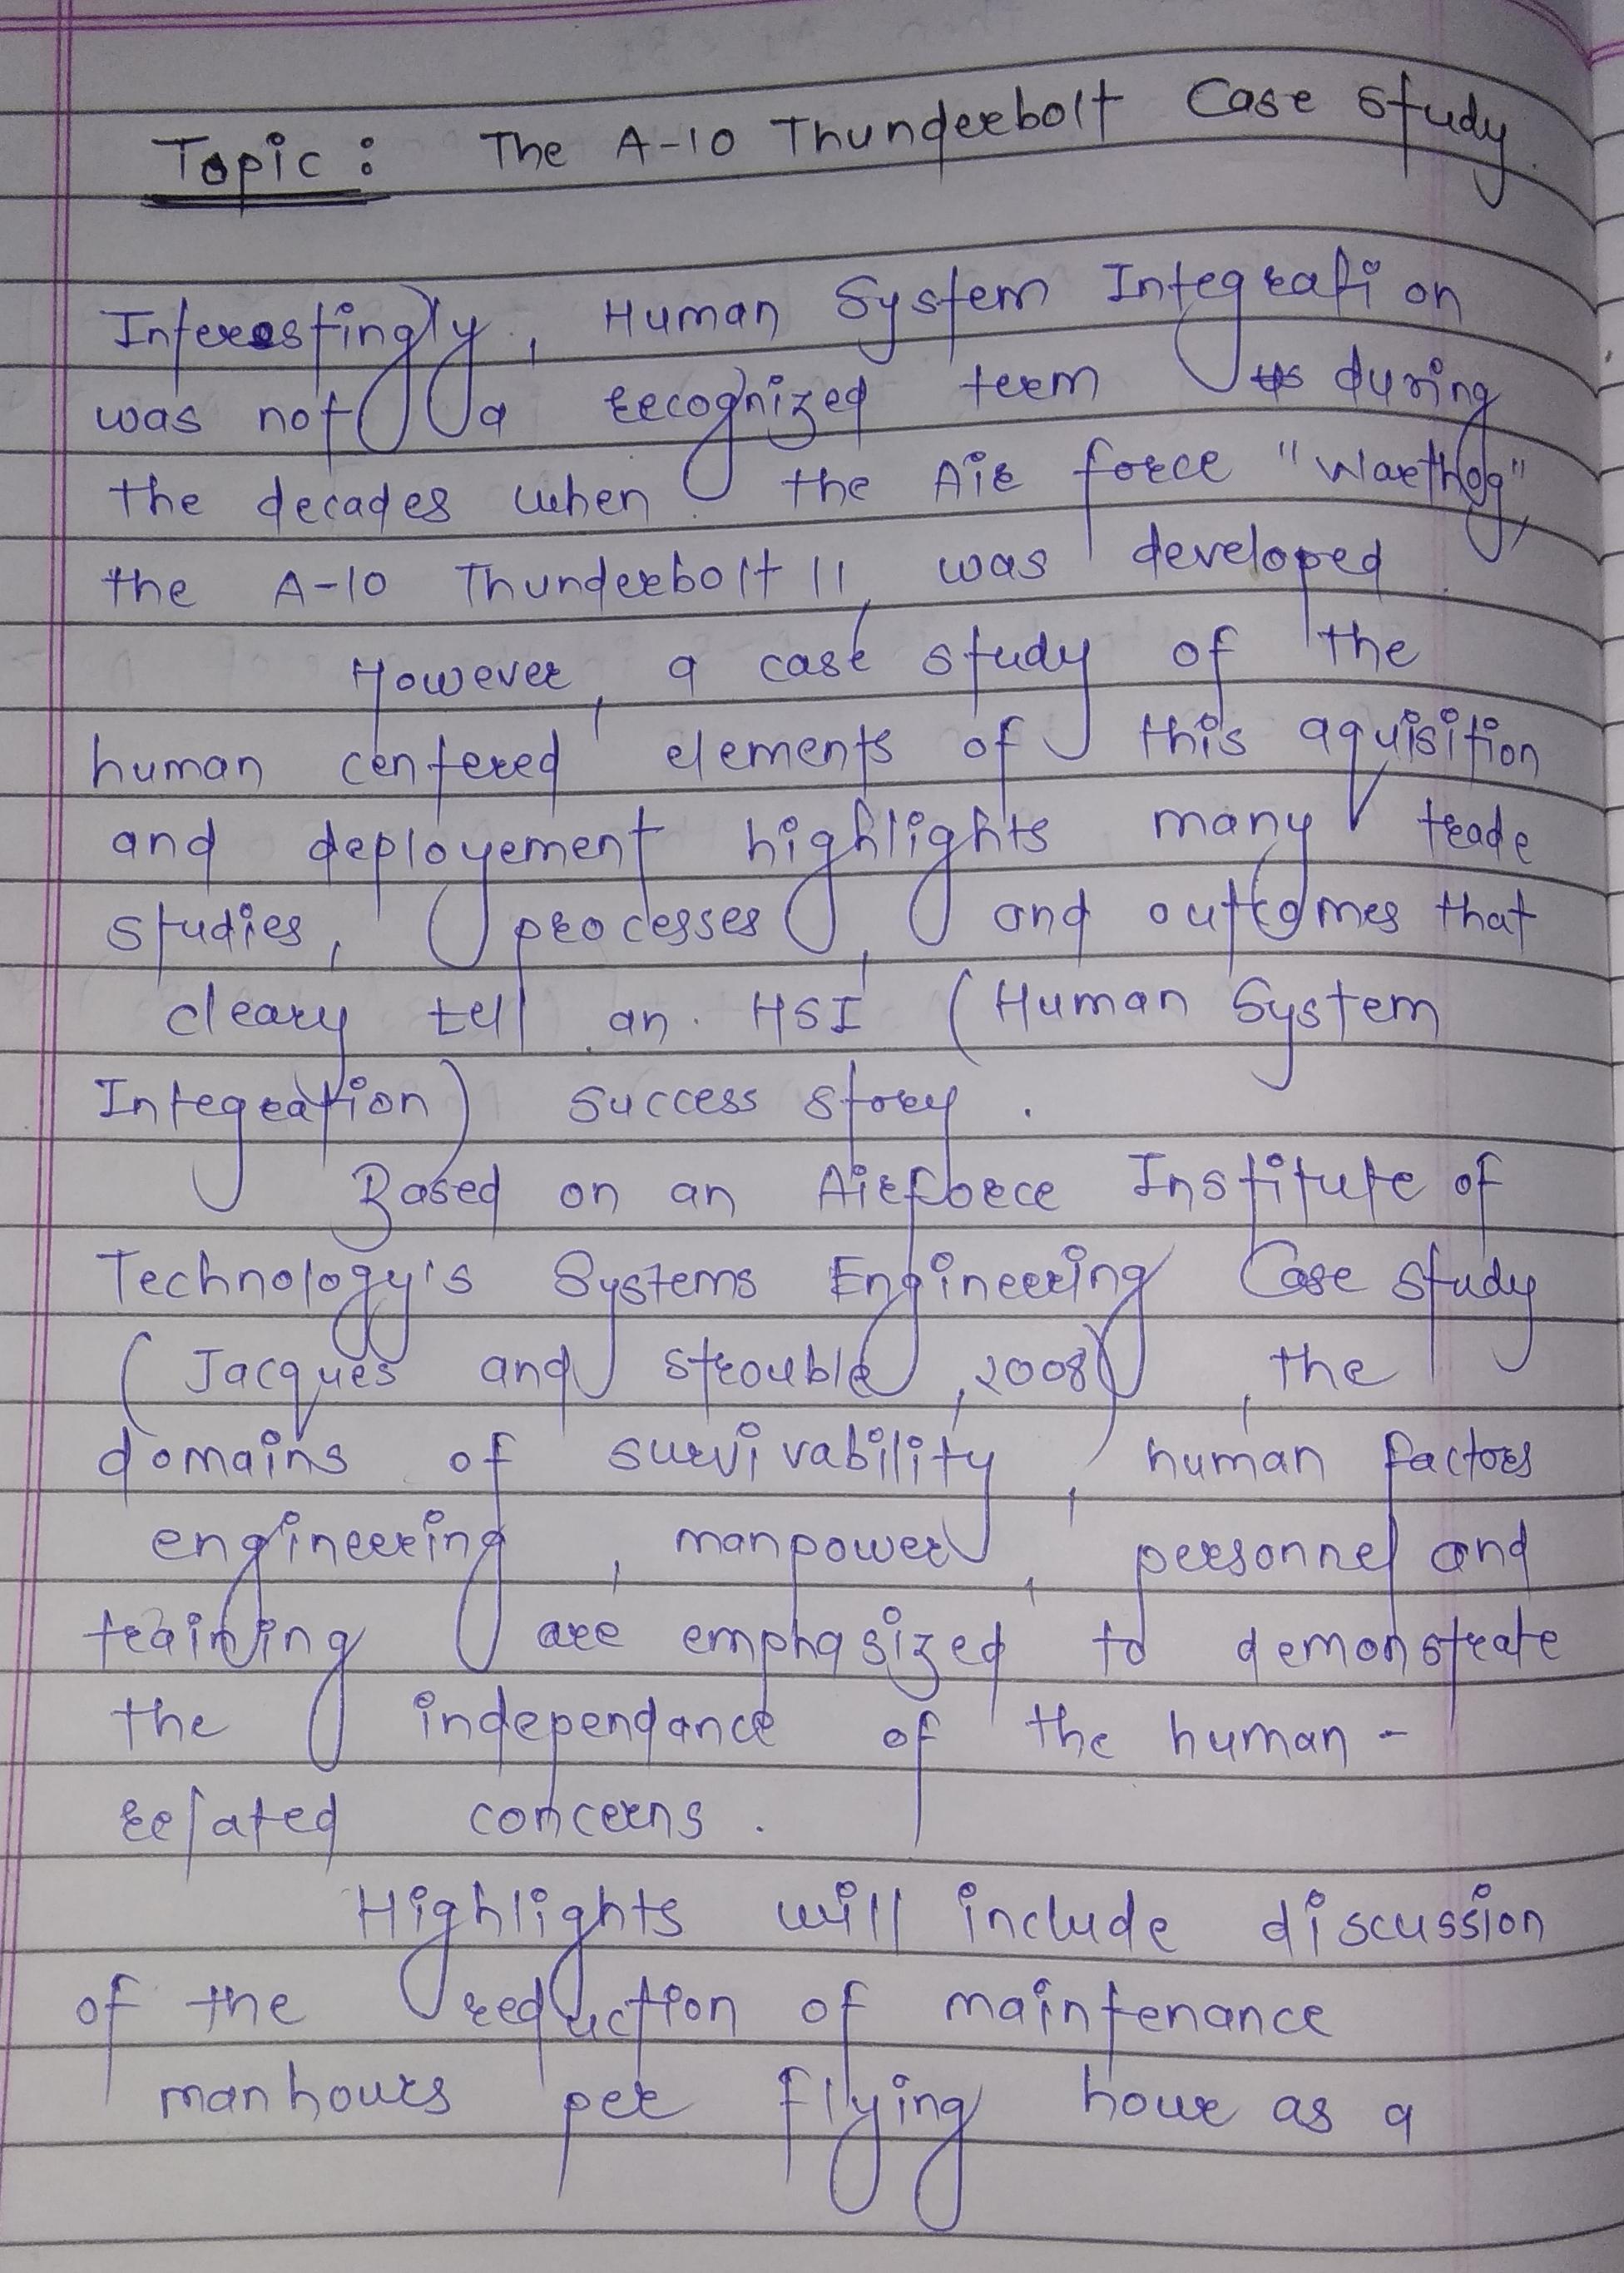 Topic : The A-10 Thunderbolt Case study.
Interestingly, Human System Integration
was not a recognized term during
the decades when the Air force "Warthog",
the A-10 Thunderbolt II, was developed.
However, a case study of the
human centered elements of this aquisition
and deployement highlights many trade
studies, processes, and outcomes that
cleary tell an HSI (Human System
Integration) success story.
Based on an Airforce Institute of
Technology's Systems Engineering Case study
(Jacques and strouble, 2008), the
domains of survivability, human factors
engineering, manpower, personnel and
training are emphasized to demonstrate
the independance of the human-
related concerns.
Highlights will include discussion
of the reduction of maintenance
manhours per flying hour as a